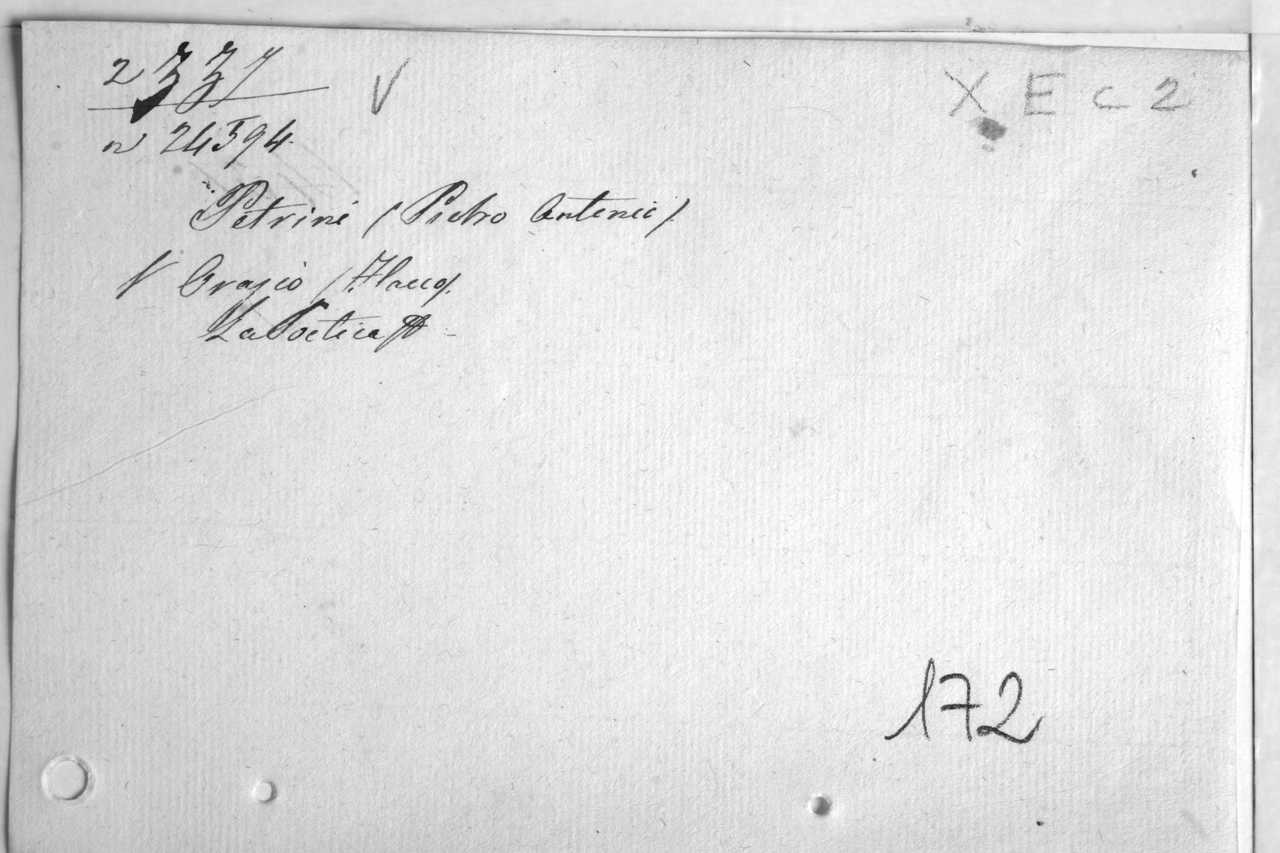 2337 V X E C 2
n 24594.
Petrini (Pietro Antonio)
V Orazio (Flacco).
La Poetica
172